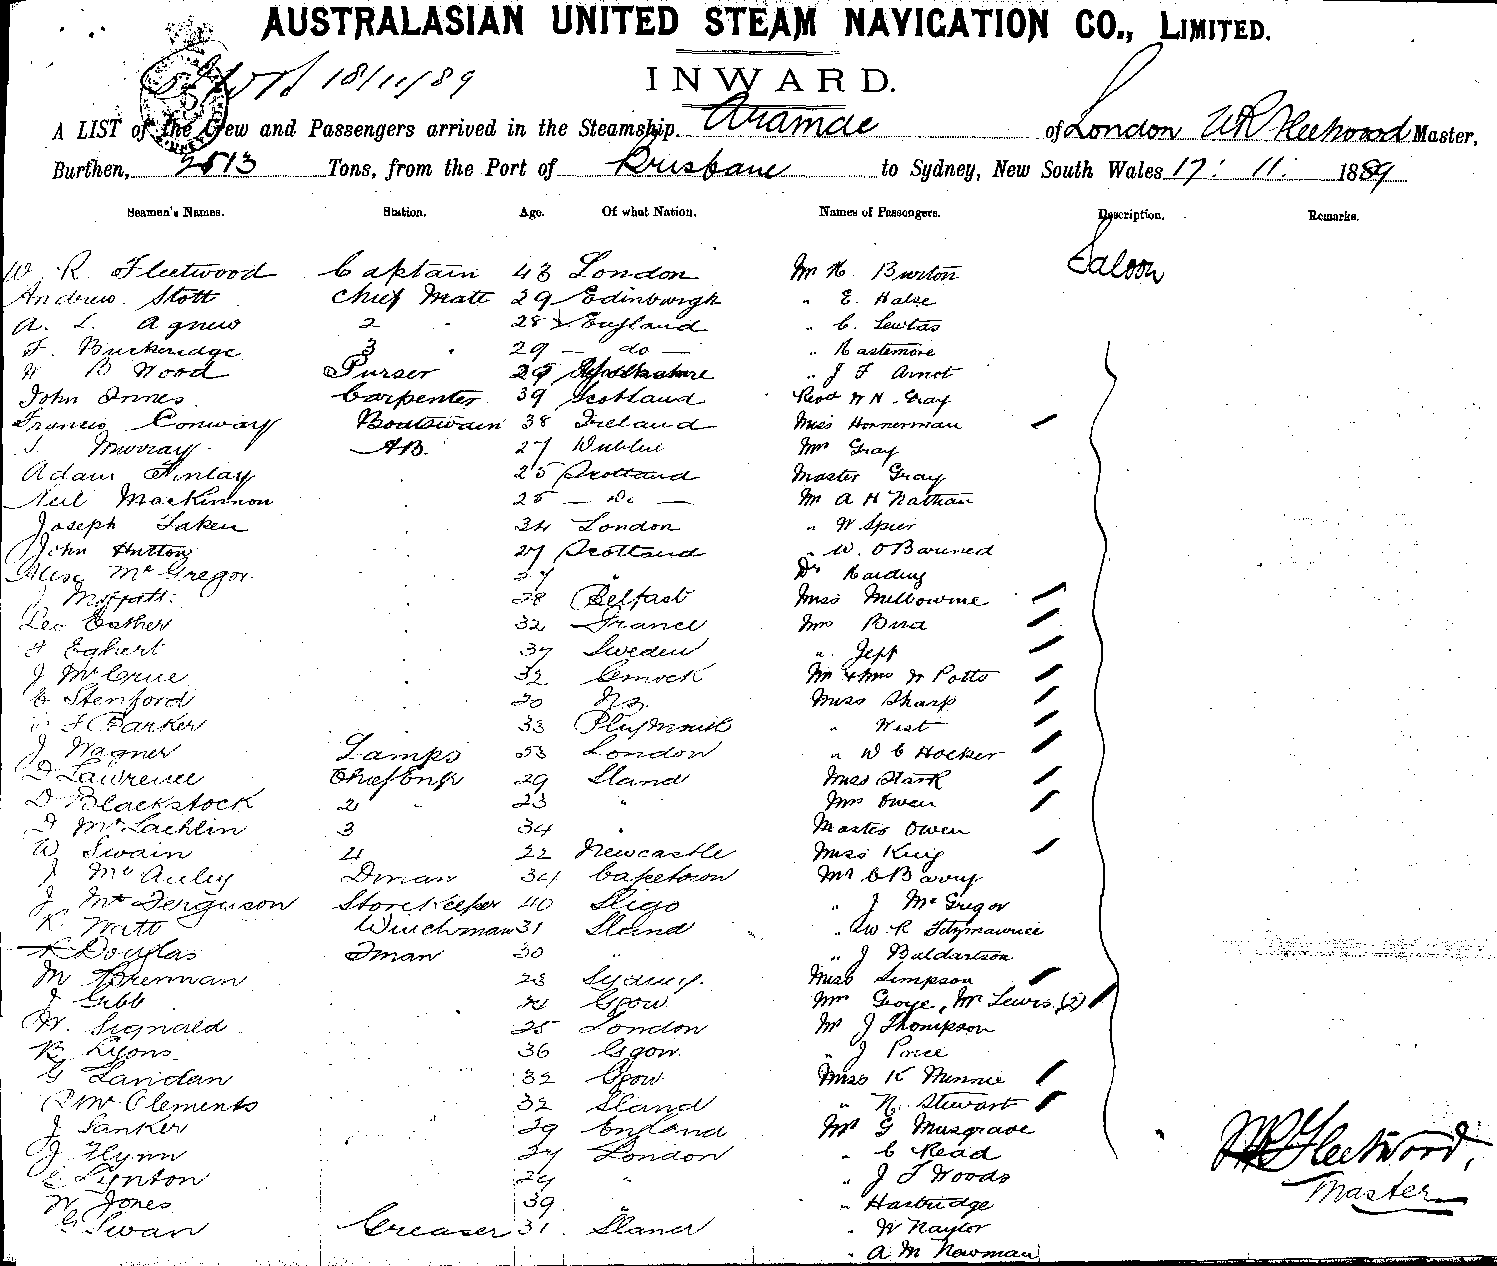 AUSTRALASIAN UNITED STEAM NAVIGATION CO., LIMITED.
18/11/89 INWARD.
A LIST of the Crew and Passengers arrived in the Steamship Aramac of London W R Fleetwood Master,
Burthen, 2513 Tons, from the Port of Brisbane to Sydney, New South Wales 17: 11: 1889
Seamen's Names. Station. Age. Of what Nation. Names of Passengers. Description. Remarks.
W. R. Fleetwood Captain 43 London Mr H. Burton Saloon
Andrew Stott Chief Mate 29 Edinburgh " E. Halse
A. L. Agnew 2 " 28 England " C. Lewtas
F. Buckeridge 3 " 29 — do — " Rastemore
W B Wood Purser 29
John Innes Carpenter 39 Scotland Revd W H Gray
Francis Conway Boatswain 38 Ireland Miss Hornerman
J Murray AB 27 Dublin Mrs Gray
Adam Finlay 25 Scotland Master Gray
Neil MacKinnon 25 — Do — Mr A H Nathan
Joseph Taken 34 London " W Spier
John Hutton 27 Scotland " W.
McGregor 27 " Dr Harding
J Moffatt 28 Belfast Miss Melbourne
Leo Esther 32 France Mrs Bird
Egbert 37 Sweden " Jepp
J McCrue 32 Mr & Mrs W Potts
C Stenford 20 NZ Miss Sharp
F Parker 33 Plymouth " West
J Wagner Lamps 53 London " W C Hocker
D Lawrence Chief Eng 29 Sland Miss Stark
D Blackstock 2 " 23 " Mrs Owen
D McLachlin 3 34 " Master Owen
W Swain 4 22 Newcastle Miss King
J McAuley Dman 34 Capetown Mr C B
J McFerguson Storekeeper 40 Sligo " J McGregor
K Witt Winchman 31 Sland " W R Fitzmaurice
R Douglas Fman 30 " " J Baldartson
M Brennan 23 Sydney. Miss Simpson
J Gibb Ggow Mrs Groye, Mr Lewis (2)
W. Signald 25 London Mr J Thompson
B Lyons 36 Ggow. " J Price
G Landan 32 Ggow Miss K Minnie
R McClements 32 Sland " N. Stewart
J Sanker 29 England Mr G Musgrave
J Flynn 27 London " C Read
C Lynton 24 " " J T Woods
W Jones 39 " " Hasbridge
G Swan Greaser 31 Sland " W Naylor
" A M Newman
W R Fleetwood,
Master